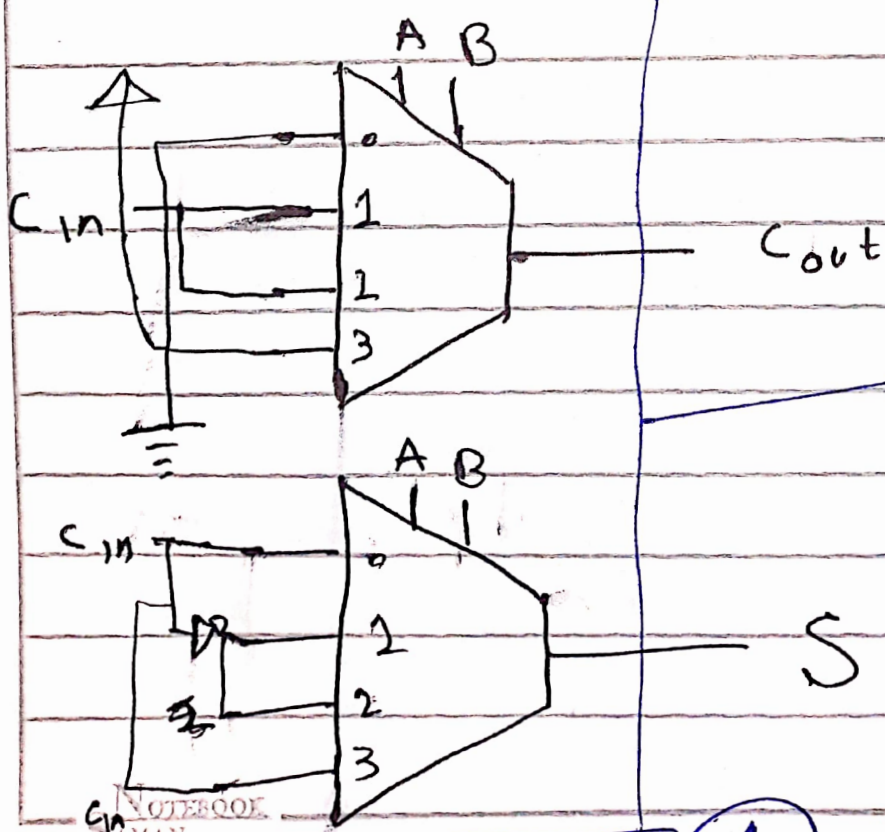 A B
0
C in 1
C out
1
3
A B
C in
0
1
S
2
3
Cin NOTEBOOK